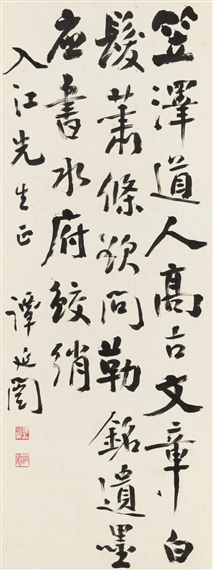 笠澤道人高古文章白
髮蕭條欲問勒銘遺墨
應書水府鮫綃
入江先生正
譚延闓